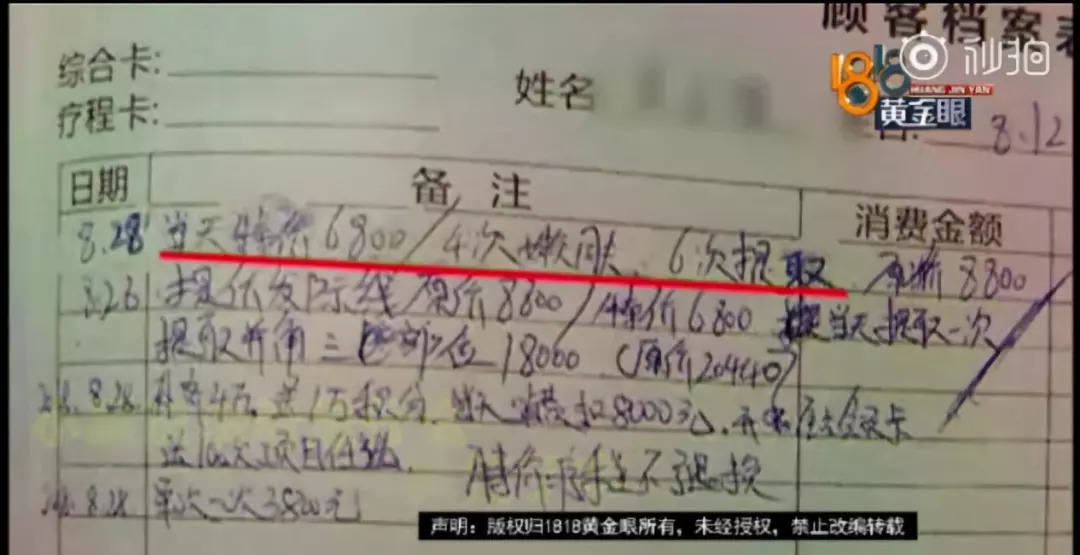 顾客档案表
秒拍
1818
HUANG JIN YAN
黄金眼
综合卡:
姓名
疗程卡:
8.12
日期
备 注
消费金额
8.28 当天特价6800/4次嫩 6次提取 原价8800
8.26 提 发际线 原价8800/特价6800 当天提取一次
提取 三 部位 18000 (原价20440)
8.28. 4万,送1万积分,当天 扣8000元, 卡
送10次项目
特价 不退换
8.28. 单次一次3800元
声明:版权归1818黄金眼所有,未经授权,禁止改编转载